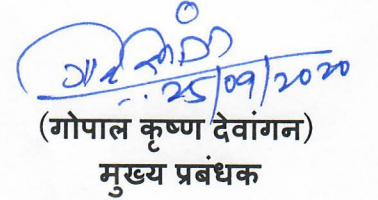 25/09/2020
(गोपाल कृष्ण देवांगन)
मुख्य प्रबंधक